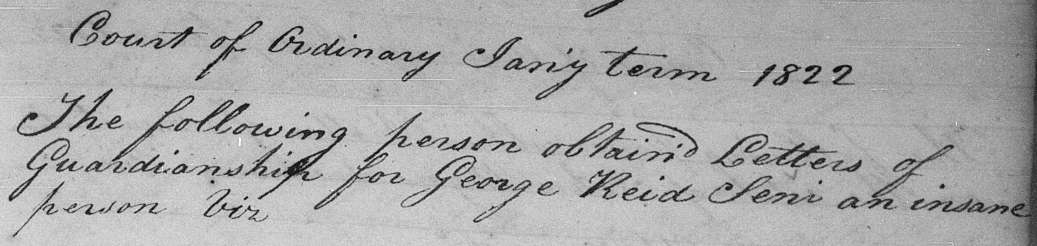 Court of Ordinary Jan'y term 1822
The following person obtain'd Letters of
Guardianship for George Reid Seni an insane
person viz